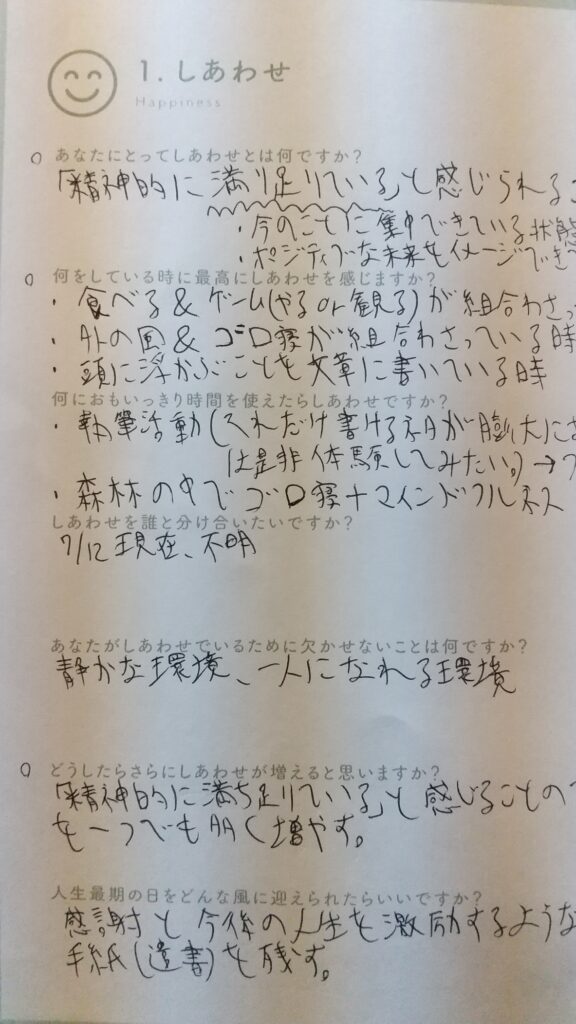 1. しあわせ
Happiness
○ あなたにとってしあわせとは何ですか?
「精神的に満り足りている」と感じられるこ
・今のことに集中できている状態
・ポジティブな未来をイメージでき
○ 何をしている時に最高にしあわせを感じますか?
・食べる & ゲーム(やる or 観る)が組合わさっ
・外の風 & ゴロ寝が組合わさっている時
・頭に浮かぶことを文章に書いている時
何におもいっきり時間を使えたらしあわせですか?
・執筆活動(それだけ書けるネタが膨大にあ
は是非体験してみたい。)→
・森林の中でゴロ寝+マインドフルネス
しあわせを誰と分け合いたいですか?
7/12 現在、不明
あなたがしあわせでいるために欠かせないことは何ですか?
静かな環境、一人になれる環境
○ どうしたらさらにしあわせが増えると思いますか?
「精神的に満ち足りている」と感じることの
を一つでも多く増やす。
人生最期の日をどんな風に迎えられたらいいですか?
感謝と今後の人生を激励するような
手紙(遺書)を残す。